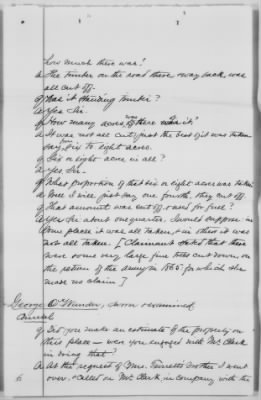 how much there was?
A The timber on the road there & way back, was
all cut off.
Q Was it standing timber?
A Yes Sir.
Q How many acres was there in it?
A It was not all cut; just the best of it was taken
say six to eight acres.
Q Six or eight acres in all?
A Yes Sir.
Q What proportion of that six or eight acres was taken?
A Well I will just say one fourth, they cut off.
Q That amount was cut off & used for fuel?
A Yes Sir about one quarter, I would suppose. in
some place it was all taken, & in others it was
not all taken. [Claimant stated that there
were some very large pine trees cut down, on
the return of the army in 1865 for which she
made no claim]
George O. Wunder, sworn & examined
Q Did you make an estimate of the property on
this place — were you engaged with Mr. Clark
in doing that
A At the request of Mrs. mother I went
over & called on Mr. Clark, in company with the